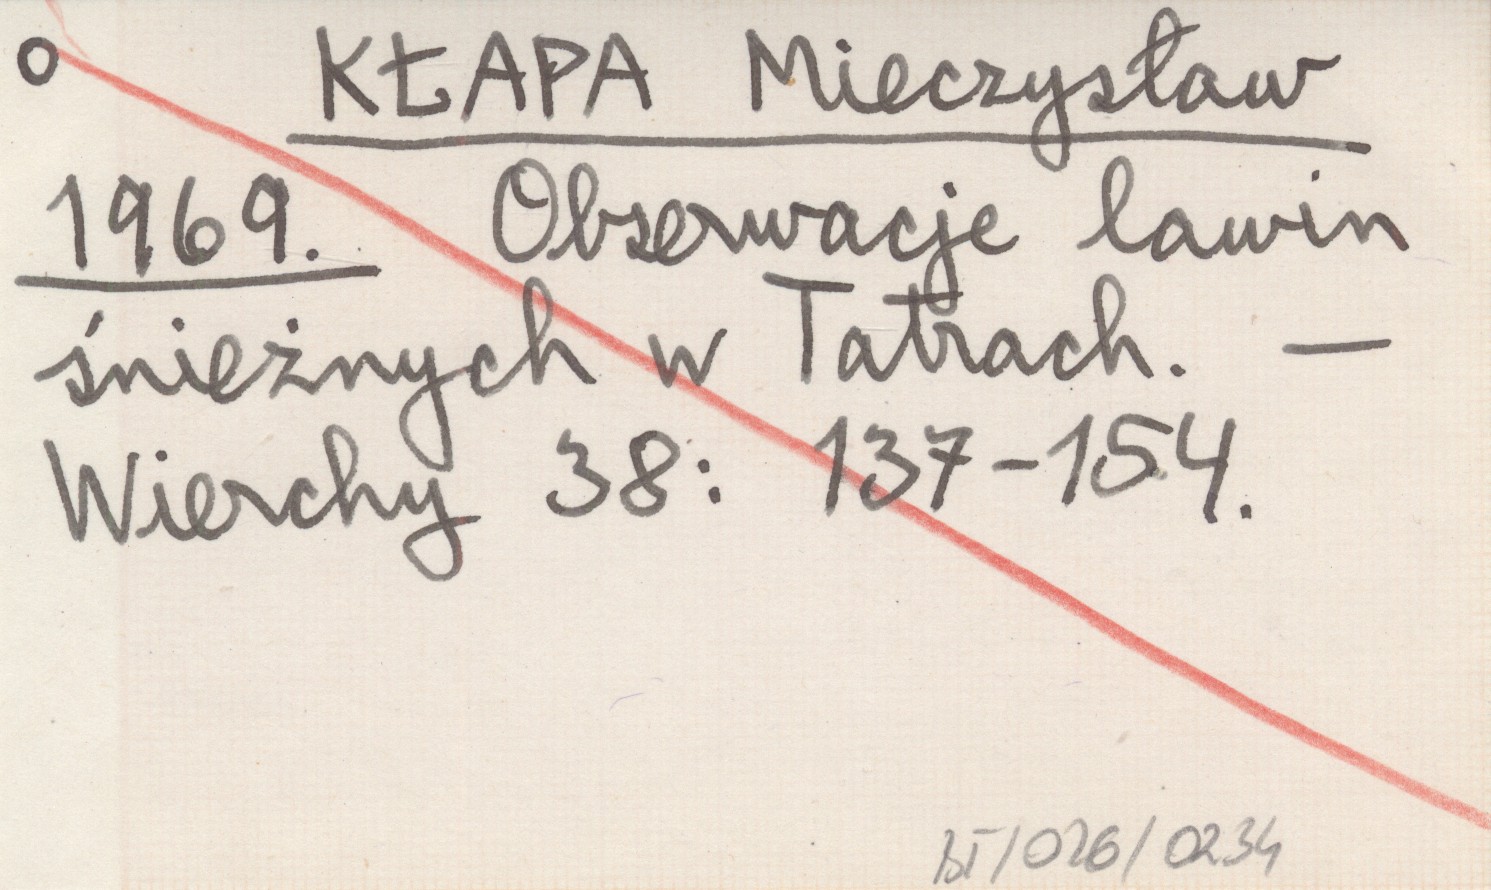 o KŁAPA Mieczysław
1969. Obserwacje lawin
śnieżnych w Tatrach. —
Wierchy 38: 137-154.
BT/026/0234